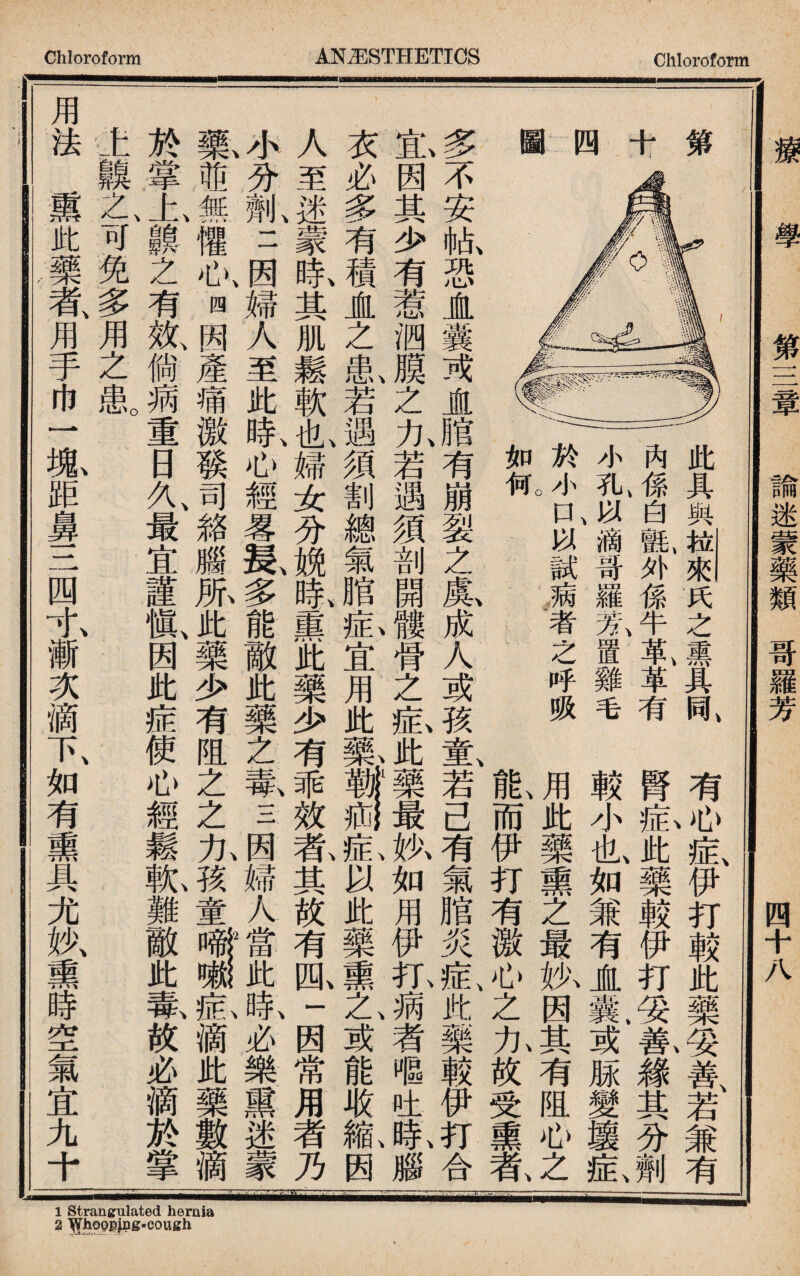 Chloroform
ANÆSTHETICS
Chloroform
療學 第三章 論迷蒙藥類 哥羅芳 四十八
第十四圖
此具與拉來氏之熏具同、
內係白氈、外係牛革、革有
小孔、以滴哥羅芳、置雞毛
於小口、以試病者之呼吸
如何。
有心症、伊打較此藥妥善、若兼有
腎症、此藥較伊打妥善、緣其分劑
較小也、如兼有血囊、或脉變壞症、
用此藥熏之最妙、因其有阻心之
能、而伊打有激心之力、故受熏者、
多不安帖、恐血囊或血脂有崩裂之虞、成人或孩童、若己有氣脂炎症、此藥較伊打合
宜、因其少有惹泗膜之力、若遇須剖開髏骨之症、此藥最妙、如用伊打、病者嘔吐時、腦
衣必多有積血之患、若遇須割總氣脂症、宜用此藥、勒疝症、以此藥熏之、或能收縮、因
人至迷蒙時、其肌鬆軟也、婦女分娩時、熏此藥少有乖效者、其故有四、一因常用者乃
小分劑、二因婦人至此時、心經畧長、多能敵此藥之毒、三因婦人當此時、必樂熏迷蒙
藥、並無懼心、四因產痛激發司絡腦所、此藥少有阻之之力、孩童啼嗽症、滴此藥數滴
於掌上、齅之有效、倘病重日久、最宜謹愼、因此症使心經鬆軟、難敵此毒、故必滴於掌
上齅之、可免多用之患。
用法 熏此藥者、用手巾一塊、距鼻三四寸、漸次滴下、如有熏具尤妙、熏時空氣宜九十
1 Strangulated hernia
2 Whooping-cough